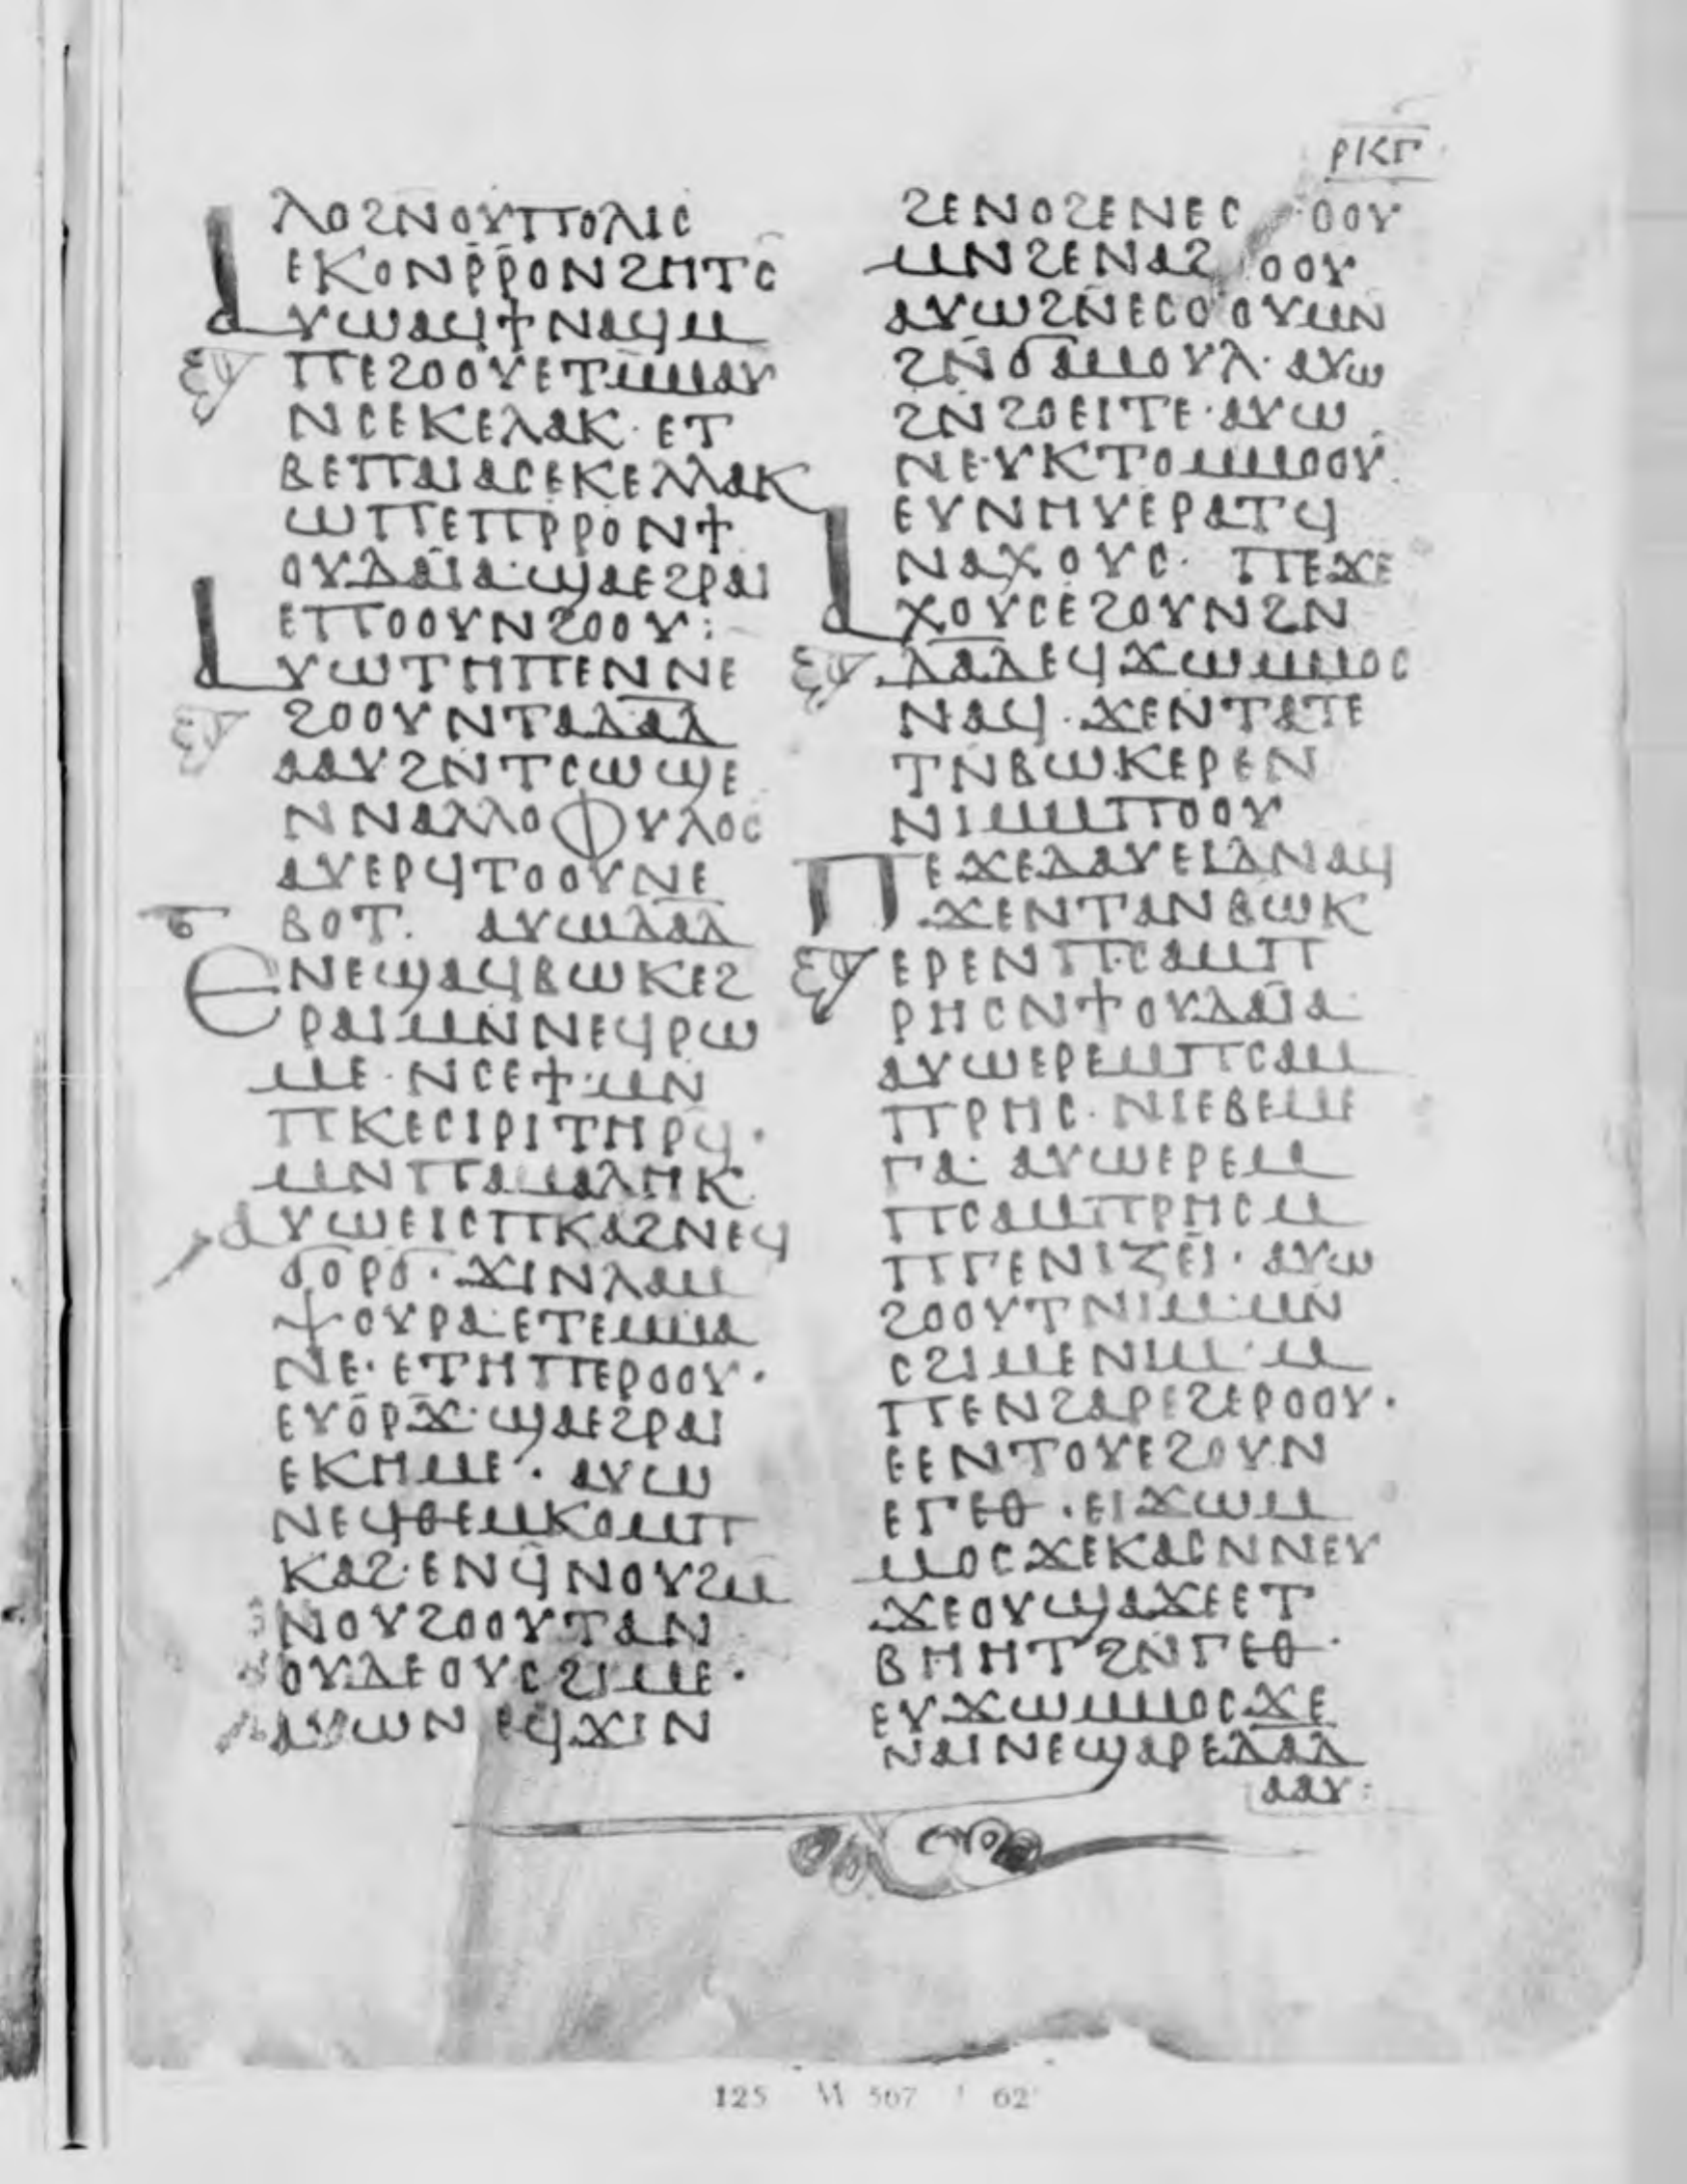 ⲣⲕⲅ
ⲗⲟϩⲛⲟⲩⲡⲟⲗⲓⲥ
ⲉⲕⲟⲛⲣ̄ⲣⲟⲛϩⲏⲧⲥ
ⲁⲩⲱⲁϥϯⲛⲁϥⲙ
ⲡⲉϩⲟⲟⲩⲉⲧⲙⲙⲁⲩ
ⲛⲥⲉⲕⲉⲗⲁⲕ· ⲉⲧ
ⲃⲉⲡⲁⲓⲁⲥⲉⲕⲉⲗⲗⲁⲕ
ϣⲡⲉⲡⲣⲣⲟⲛϯ
ⲟⲩⲇⲁⲓⲁ·ϣⲁⲉϩⲣⲁⲓ
ⲉⲡⲟⲟⲩⲛϩⲟⲟⲩ:
ⲁⲩⲱⲧⲏⲡⲉⲛⲛⲉ
ϩⲟⲟⲩⲛⲧⲁⲇⲁⲇ
ⲁⲁⲩϩⲛⲧⲥⲱϣⲉ
ⲛⲛⲁⲗⲗⲟⲫⲩⲗⲟⲥ
ⲁⲩⲉⲣϥⲧⲟⲟⲩⲛⲉ
ⲃⲟⲧ. ⲁⲩⲱⲇⲁⲇ
ⲉⲛⲉϣⲁϥⲃⲱⲕⲉϩ
ⲣⲁⲓⲙⲛⲛⲉϥⲣⲱ
ⲙⲉ·ⲛⲥⲉϯ·ⲙⲛ
ⲡⲕⲉⲥⲓⲣⲓⲧⲏⲣϥ·
ⲙⲛⲡⲁⲙⲁⲗⲏⲕ
ⲁⲩⲱⲉⲓⲥⲡⲕⲁϩⲛⲉϥ
ϭⲟⲣϭ·ϫⲓⲛⲗⲁⲙ
ⲯⲟⲩⲣⲁ·ⲉⲧⲉⲙⲙⲁ
ⲛⲉ·ⲉⲧⲏⲡⲉⲣⲟⲟⲩ·
ⲉⲩⲟⲣϫ·ϣⲁⲉϩⲣⲁⲓ
ⲉⲕⲏⲙⲉ·ⲁⲩⲱ
ⲛⲉϥⲑⲉⲙⲕⲟⲙⲡ
ⲕⲁϩ·ⲉⲛϥⲛⲟⲩϩⲙ
ⲛⲟⲩϩⲟⲟⲩⲧⲁⲛ
ⲟⲩⲇⲉⲟⲩⲥϩⲓⲙⲉ·
ⲁⲩⲱⲛ ⲉϥϫⲓⲛ
ϩⲉⲛⲟϩⲉⲛⲉⲥ ⲟⲟⲩ
ⲙⲛϩⲉⲛⲁϩ ⲟⲟⲩ
ⲁⲩⲱϩⲛⲉⲥⲟⲟⲩⲙⲛ
ϩⲛϭⲁⲙⲟⲩⲗ·ⲁⲩⲱ
ϩⲛϩⲟⲉⲓⲧⲉ·ⲁⲩⲱ
ⲛⲉⲩⲕⲧⲟⲙⲙⲟⲟⲩ
ⲉⲩⲛⲏⲩⲉⲣⲁⲧϥ
ⲛⲁⲭⲟⲩⲥ· ⲡⲉϫⲉ
ⲁⲭⲟⲩⲥⲉϩⲟⲩⲛϩⲛ
ⲇⲁⲇⲉϥϫⲱⲙⲙⲟⲥ
ⲛⲁϥ·ϫⲉⲛⲧⲁⲧⲉ
ⲧⲛⲃⲱⲕⲉⲣⲉⲛ
ⲛⲓⲙⲙⲡⲟⲟⲩ
ⲡⲉϫⲉⲇⲁⲩⲉⲓⲇⲛⲁϥ
ϫⲉⲛⲧⲁⲛⲃⲱⲕ
ⲉⲣⲉⲛⲡⲥⲁⲙⲡ
ⲣⲏⲥⲛϯⲟⲩⲇⲁⲓⲁ·
ⲁⲩⲱⲉⲣⲉⲙⲡⲥⲁⲙ
ⲡⲣⲏⲥ·ⲛⲓⲉⲃⲉⲙⲉ
ⲅⲁ· ⲁⲩⲱⲉⲣⲉⲙ
ⲡⲥⲁⲙⲡⲣⲏⲥⲙ
ⲡⲅⲉⲛⲓⲍⲉⲓ·ⲁⲩⲱ
ϩⲟⲟⲩⲧⲛⲓⲙ·ⲙⲛ
ⲥϩⲓⲙⲉⲛⲓⲙ·ⲙ
ⲡⲉⲛϩⲁⲣⲉϩⲉⲣⲟⲟⲩ·
ⲉⲉⲛⲧⲟⲩⲉϩⲟⲩⲛ
ⲉⲅⲉⲑ·ⲉⲓϫⲱⲙ
ⲙⲟⲥϫⲉⲕⲁⲥⲛⲛⲉⲩ
ϫⲉⲟⲩϣⲁϫⲉⲉⲧ
ⲃⲏⲏⲧϩⲛⲅⲉⲑ·
ⲉⲩϫⲱⲙⲙⲟⲥϫⲉ
ⲛⲁⲓⲛⲉϣⲁⲣⲉⲇⲁⲇ
ⲁⲁⲩ:
125 M 567 f 62